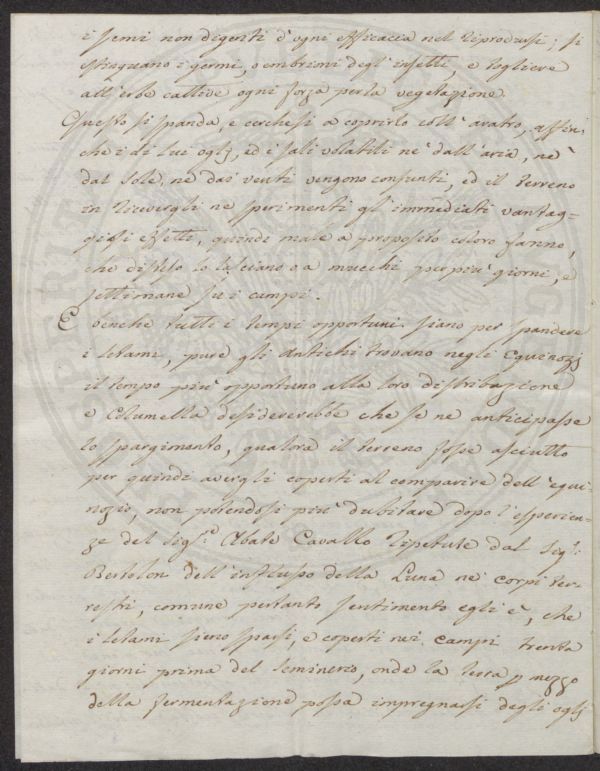 i semi non digeriti d'ogni efficaccia nel riprodursi; si
stinguano i germi, o embrioni degl'insetti, e togliere
all'erbe cattive ogni forza per la vegetazione.
Questo si spanda, e cerchesi a coprirlo coll'aratro, affin-
che i di lui oglj, ed i sali volatili nè dall'aria, nè
dal sole, nè dai venti vengono consunti, ed il terreno
in riceverli ne sperimenti gl'immediati vantag-
giosi effetti, quindi male a proposito coloro fanno,
che disteso lo lasciano o a mucchi per più giorni, e
settimane su i campi.
E benche tutti i tempi opportuni siano per spandere
i letami, pure gli antichi trovano negli Equinozj
il tempo più opportuno alla loro distribuzione
e Columella desidererebbe che se ne anticipasse
lo spargimento, qualora il terreno fosse asciutto
per quindi avergli coperti al comparire dell'equi-
nozio, non potendosi più dubitare dopo l'esperien-
ze del Sig.r Abate Cavallo ripetute dal Sig.r
Bertolon dell'influsso della Luna nè corpi ter-
restri, comune pertanto sentimento egli è, che
i letami sieno sparsi, e coperti nei campi trenta
giorni prima del seminerio, onde la terra p mezzo
della fermentazione possa impregnarsi degli oglj